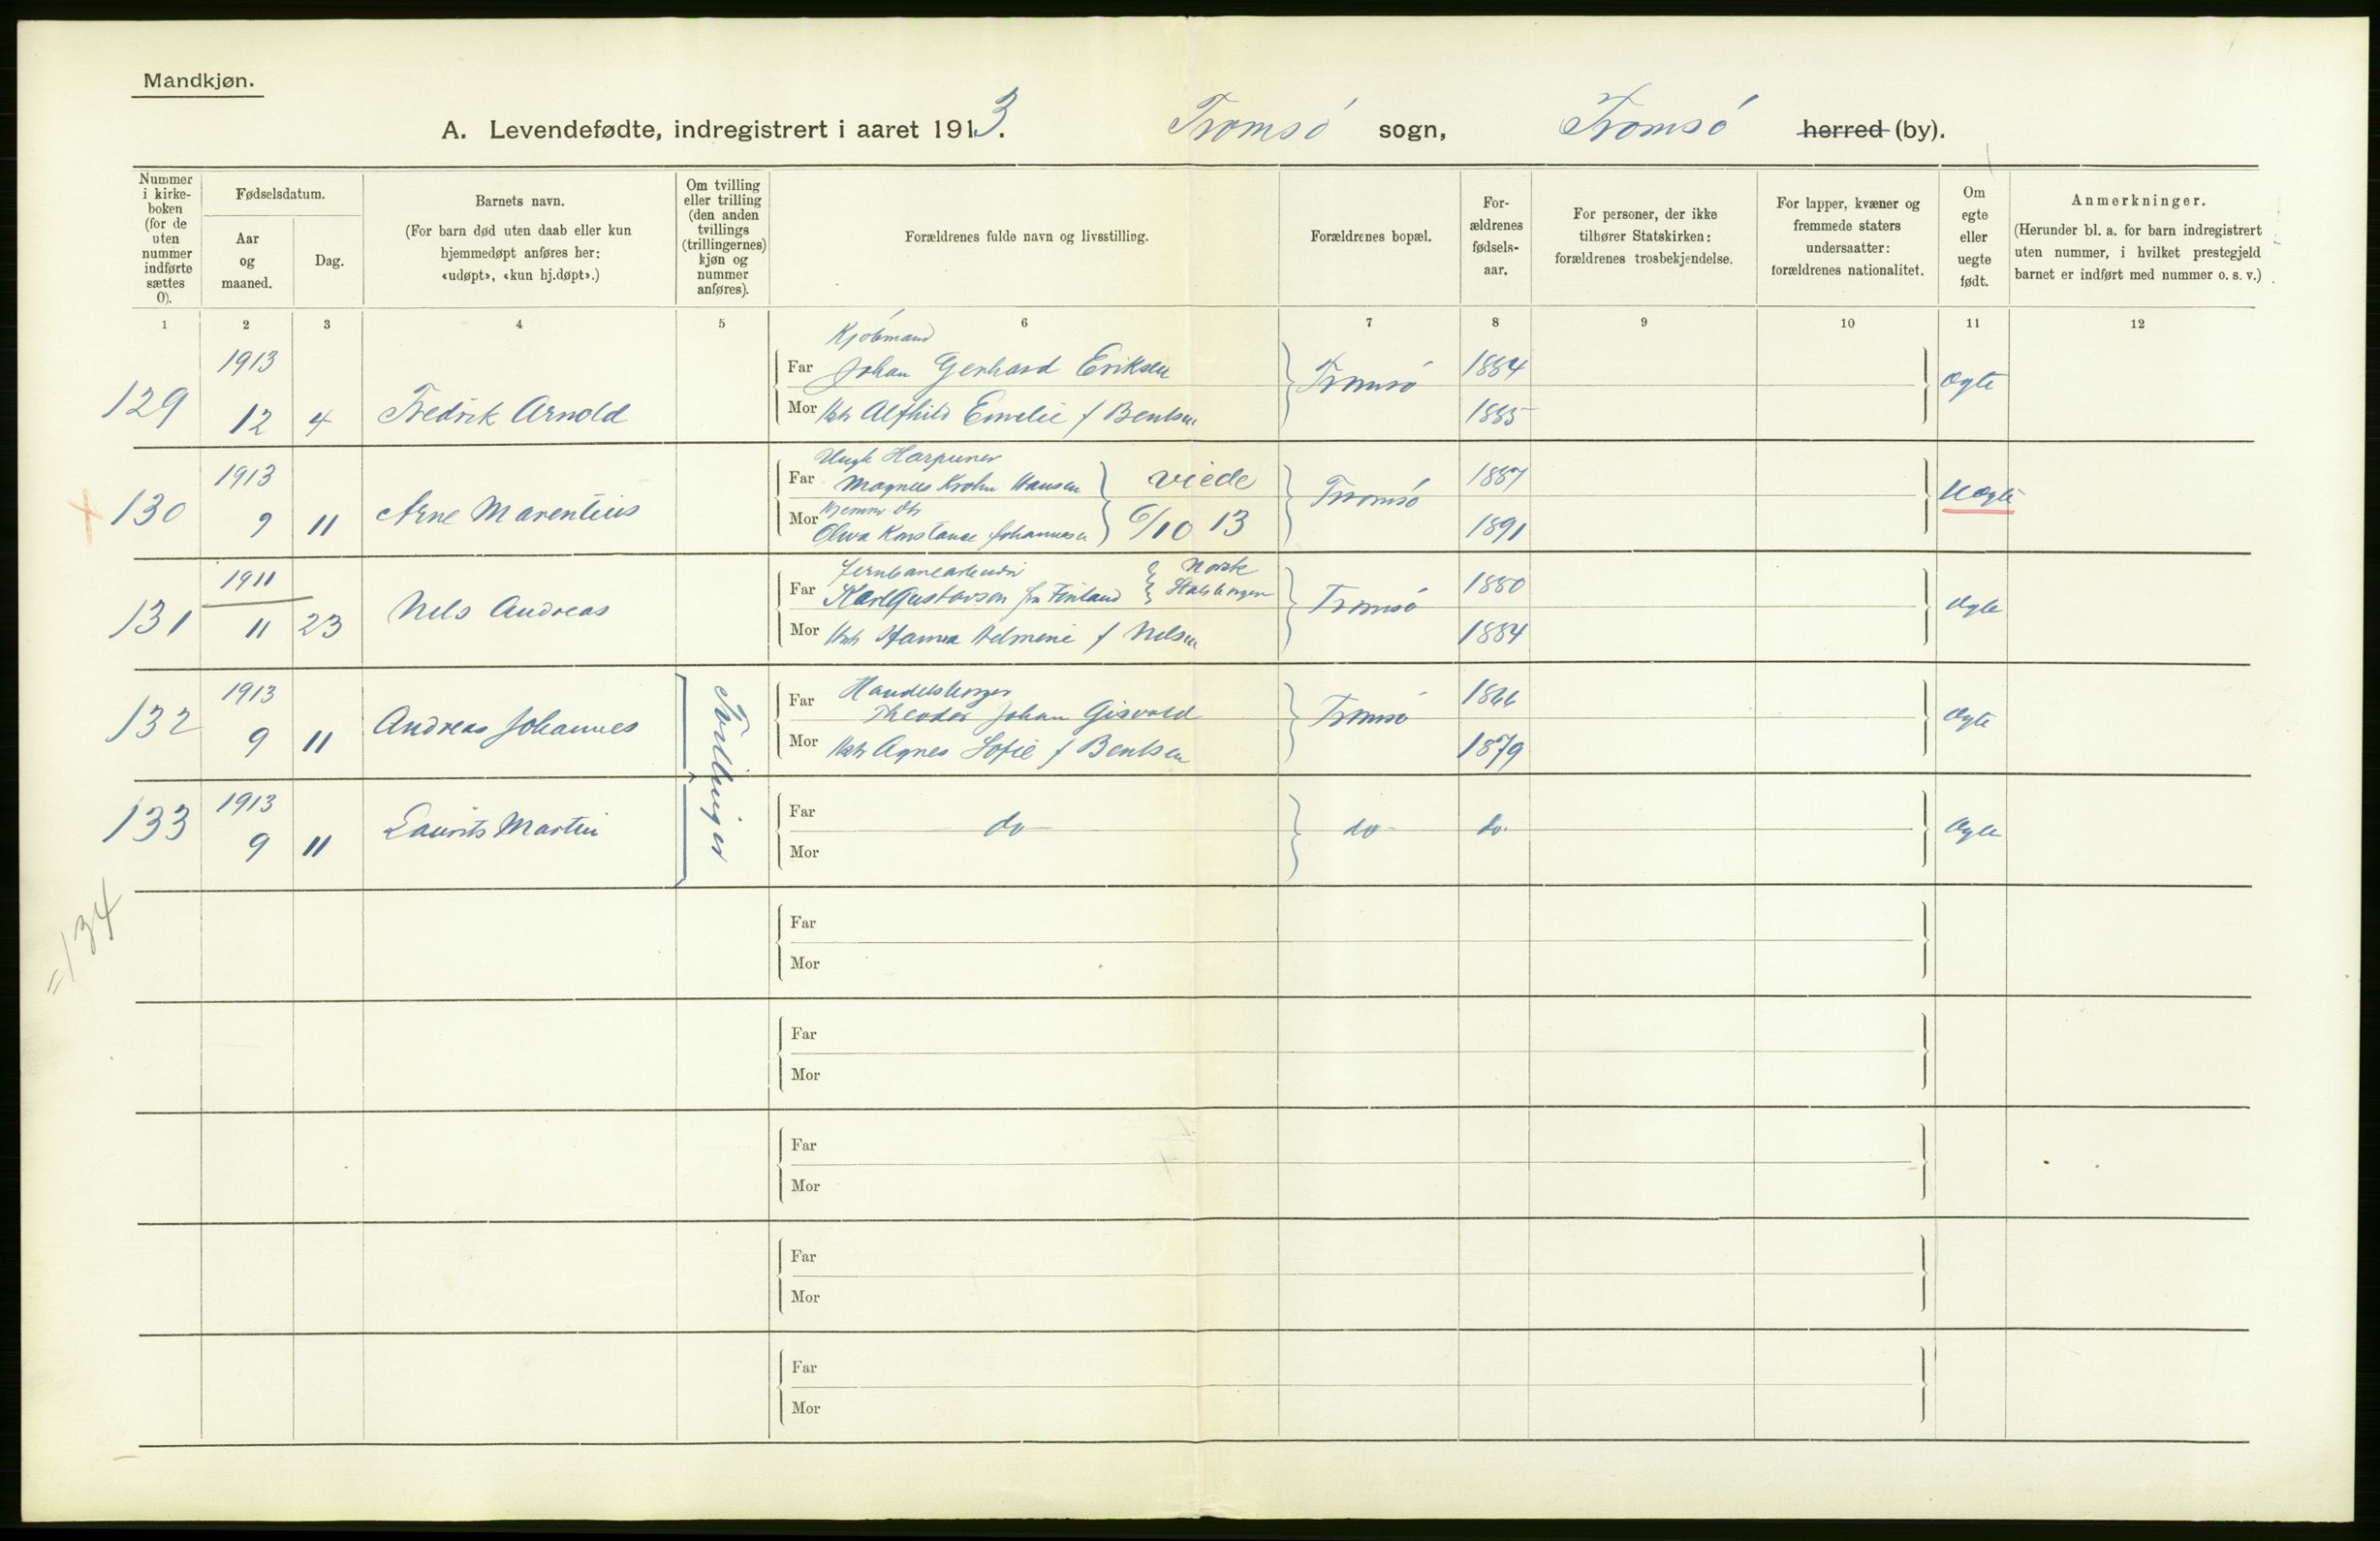 Mandkjøn.
A. Levendefødte, indregistrert i aaret 1913. Tromsö sogn, Tromsö herred (by).
Nummer i kirke-boken (for de uten nummer indførte sættes 0).
Fødselsdatum.
Aar og maaned.
Dag.
Barnets navn.
(For barn død uten daab eller kun hjemmedøpt anføres her: «udøpt», «kun hj.døpt».)
Om tvilling eller trilling (den anden tvillings (trillingernes) kjøn og nummer anføres).
Forældrenes fulde navn og livsstilling.
Forældrenes bopæl.
For-ældrenes fødsels-aar.
For personer, der ikke tilhører Statskirken: forældrenes trosbekjendelse.
For lapper, kvæner og fremmede staters undersaatter: forældrenes nationalitet.
Om egte eller uegte født.
Anmerkninger.
(Herunder bl. a. for barn indregistrert uten nummer, i hvilket prestegjeld barnet er indført med nummer o. s. v.)
1 2 3 4 5 6 7 8 9 10 11 12
Kjöbmand
1913 Far Johan Gerhard Eriksen Tromsö 1884 Ægte
129 12 4 Fredrik Arnold Mor Alfhild Emelie f Bentsen 1885
Ungk Harpuner
1913 Far Magnus Krohn Hansen viede Tromsö 1887 Uægte
130 9 11 Arne Marentius Mor Olwa Konstanse Johannesen 6/10 13 1891
Jernbanearbeider Norsk
1911 Far Karl Gustavson fra Finland Statsborger Tromsö 1880 Ægte
131 11 23 Nils Andreas Mor Helmine f Nilsen 1884
Handelsborger
1913 Far Theodor Johan Gisvold Tromsö 1866 Ægte
132 9 11 Andreas Johannes Mor Agnes Sofie f Bentsen 1879
Tvillinger
133 1913 Far
9 11 Laurits Martin do do do Ægte
Mor
=134
Far
Mor
Far
Mor
Far
Mor
Far
Mor
Far
Mor